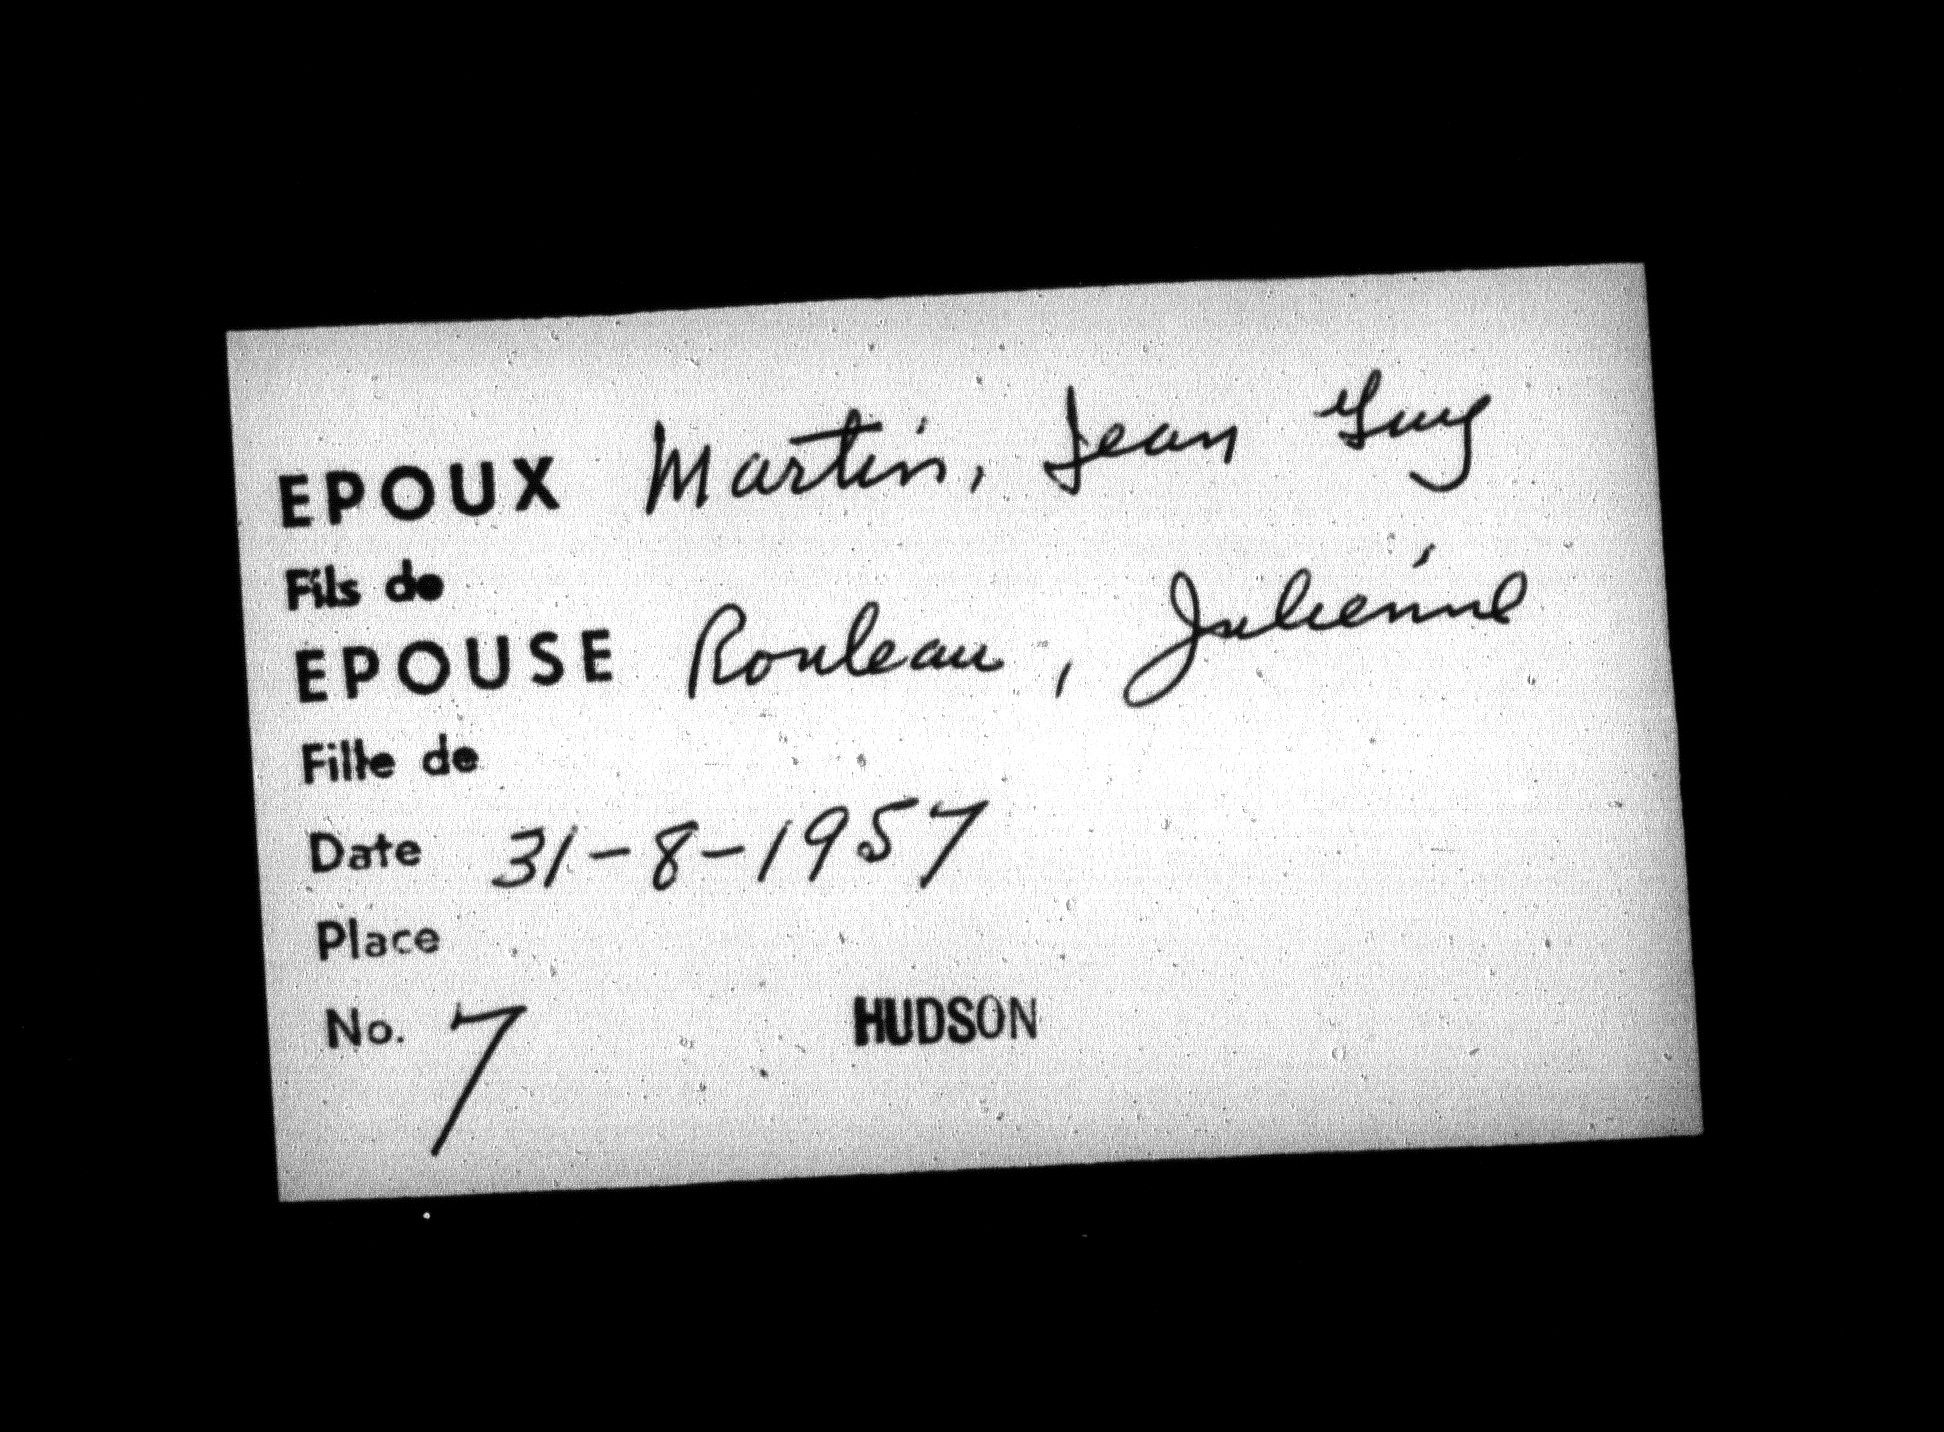 EPOUX Martin, Jean Guy
Fils de
EPOUSE Rouleau, Julienne
Fille de
Date 31-8-1957
Place
No. 7 HUDSON